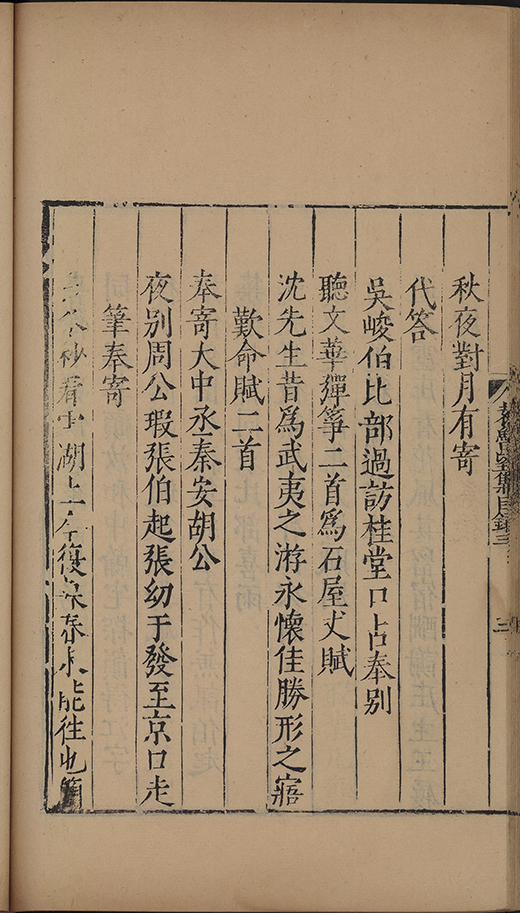 秋夜對月有寄
代答
吳峻伯比部過訪桂堂口占奉别
聽文華彈箏二首爲石屋丈賦
沈先生昔爲武夷之游永懷佳勝形之寤
歎命賦二首
奉寄大中丞秦安胡公
夜别周公瑕張伯起張幼于發至京口走
筆奉寄
看 湖上 復 泰 能往也
集目錄三
三